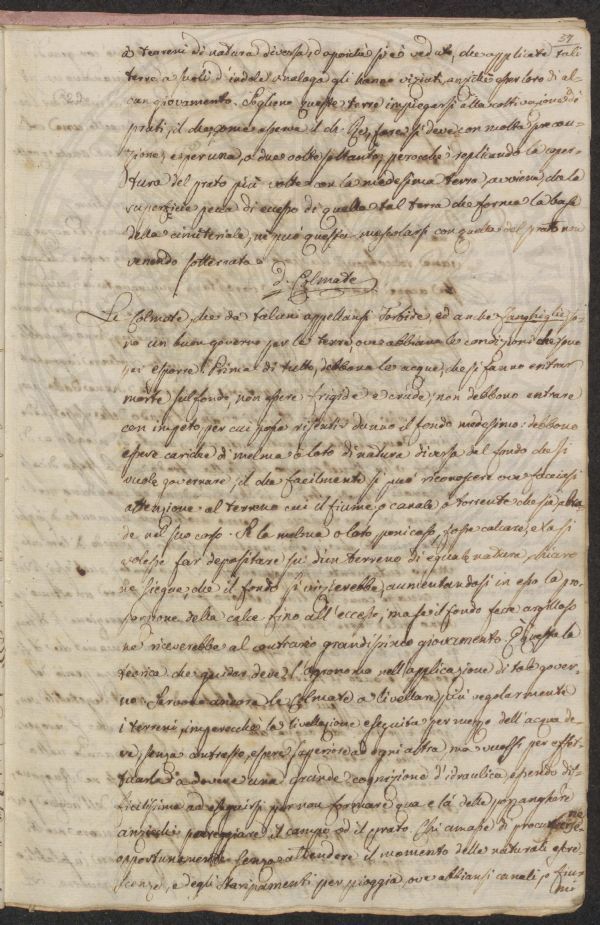 37
a terreni di natura diversa, d'opposita si è veduto, che applicate tali
terre a suoli d'indole analoga gli hanno viziati, anziché esser loro di al-
cun giovamento. Sogliono queste terre impiegarsi alla coltivazione de'
prati, il che, come osserva il de Re, fare si deve con molta precau-
zione, e per una, o due volte soltanto, perocché replicando la coper-
tura del prato più volte con la medesima terra, avviene che la
superficie pecca di eccesso di quella tal terra che forma la base
della cimiteriale, né può questa mescolarsi con quella del prato non
venendo sotterrata.
d. Colmate
Le Colmate, che da taluni appellansi Torbide, ed anche so-
no un buon governo per le terre, ove abbiano le condizioni che sono
per esporre. Prima di tutto, debbono le acque, che si fanno entrare
sul fondo, non essere frigide e crude, non debbono entrare
con impeto per cui possa risentir danno il fondo medesimo: debbono
essere cariche di melma o loto di natura diversa dal fondo che si
vuole governare, il che facilmente si può riconoscere ove facciasi
attenzione al terreno cui il fiume, o canale, o torrente che sia,
nel suo corso. Se la melma o loto poni caso, fosse calcare, e la si
volesse far depositare su d'un terreno di eguale natura, chiaro
ne siegue che il fondo si vizierebbe, aumentandosi in esso la pro-
porzione della calce fino all'eccesso, ma se il fondo fosse argilloso
ne riceverebbe al contrario grandissimo giovamento. È questa la
teorica che guidar deve l'Agronomo nell'applicazione di tale gover-
no. Servono ancora le Colmate a livellare più regolarmente
i terreni, imperocché la livellazione eseguita per mezzo dell'acqua de-
ve, senza contrasto, essere superiore ad ogni altra, ma vuolsi per effet-
tuarla a dovere una grande cognizione d'idraulica, essendo dif-
ficilissimo ad eseguirsi per non formare qua e là delle pozzanghere
anziché pareggiare il campo od il prato. Chi amasse di procurarsene
opportunamente attendere il momento delle naturali escre-
scenze, e degli per pioggia, ove abbiansi canali, o fiu-
mi